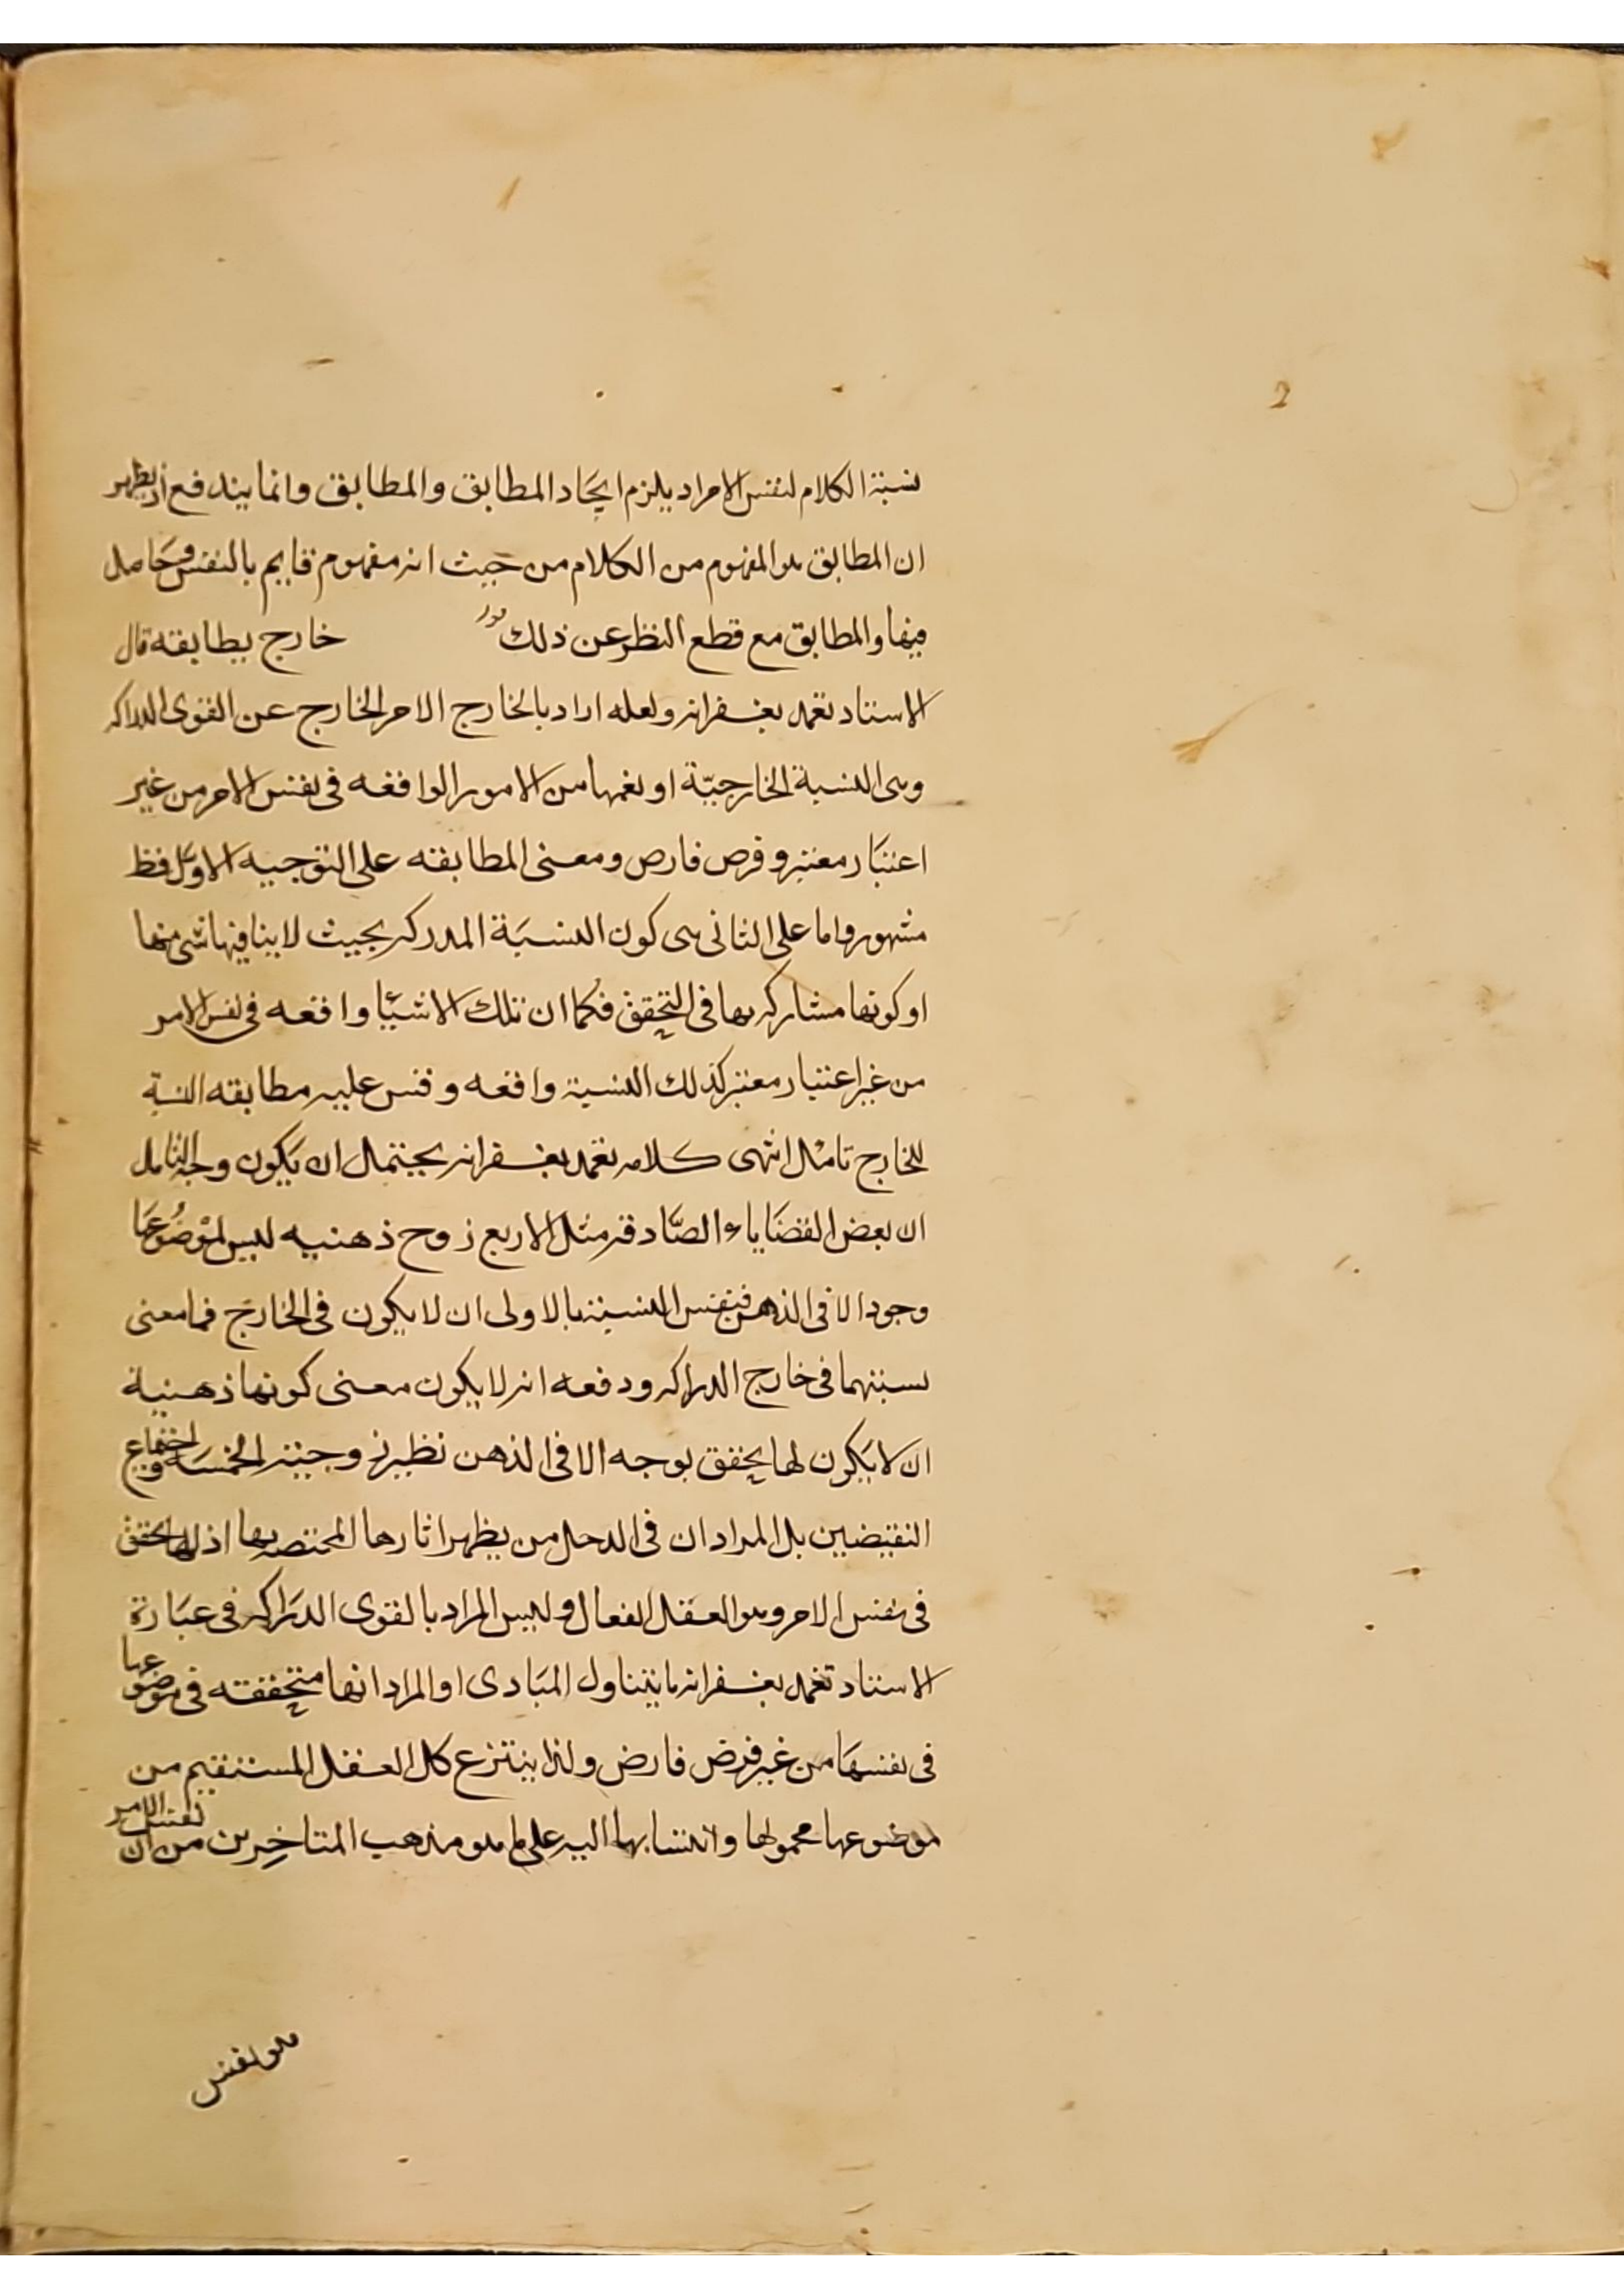 2
نسبة الكلام لنفس الامر اذ يلزم ايجاد المطابق والمطابق وانما يندفع اذ يظهر
ان المطابق هو المفهوم من الكلام من حيث انه مفهوم قايم بالنفس وحاصل
فيها والمطابق مع قطع النظر عن ذلك خارج يطابقه قال
الاستاد تغمد بغفرانه ولعله اراد بالخارج الامر الخارج عن القوى الدراكه
وهى النسبة الخارجيّة او نعمها من الامور الواقعه فى نفس الامر من غير
اعتبار معتبر وفرض فارض ومعنى المطابقته على التوجيه الاول فظ
مشهور واما على الثانى هى كون النسبة المدركه بحيث لا ينافيها شى منها
او كونها مشاركه بها فى التحقق فكما ان تلك الاشيا واقعه فى نفس الامر
من غير اعتبار معتبر كذلك النسبة واقعه وقس عليه مطابقته النسبة
للخارج تامل انتهى كلامه تغمد بغفرانه يحيتمل ان يكون وجه التامل
ان بعض القضايا الصادقه مثل الاربع زوج ذهنيه ليس لموضوعها
وجود الا فى الذهن فنفس النسبة بالاولى ان لا يكون فى الخارج فما معنى
نسبتهما فى خارج الدراكه ودفعه انه لا يكون معنى كونها ذهنية
ان لا يكون لها تحقق بوجه الا فى الذهن نظير زوجية الخمسة واجتماع
النقيضين بل المراد ان فى الدحل من يظهر اثارها المختصه بها اذ لها تحقق
فى نفس الامر وهو العقل الفعال وليس المراد بالقوى الدراكه فى عبارة
الاستاد تغمد بغفرانه ما يتناول المبادى او المراد انها متحققته فى موضوعها
فى نفسها من غير فرض فارض ولذا ينتزع كل العقل المستقيم من
موضوعها محمولها وانتسابها اليه على ما هو مذهب المتاخرين من ان نفس الامر
هو نفس